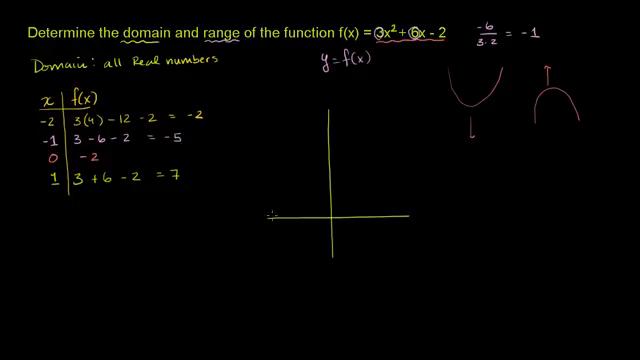 Determine the domain and range of the function f(x) = 3x² + 6x - 2
-6 / 3·2 = -1
Domain: all Real numbers
y = f(x)
x f(x)
-2 3(4) - 12 - 2 = -2
-1 3 - 6 - 2 = -5
0 -2
1 3 + 6 - 2 = 7